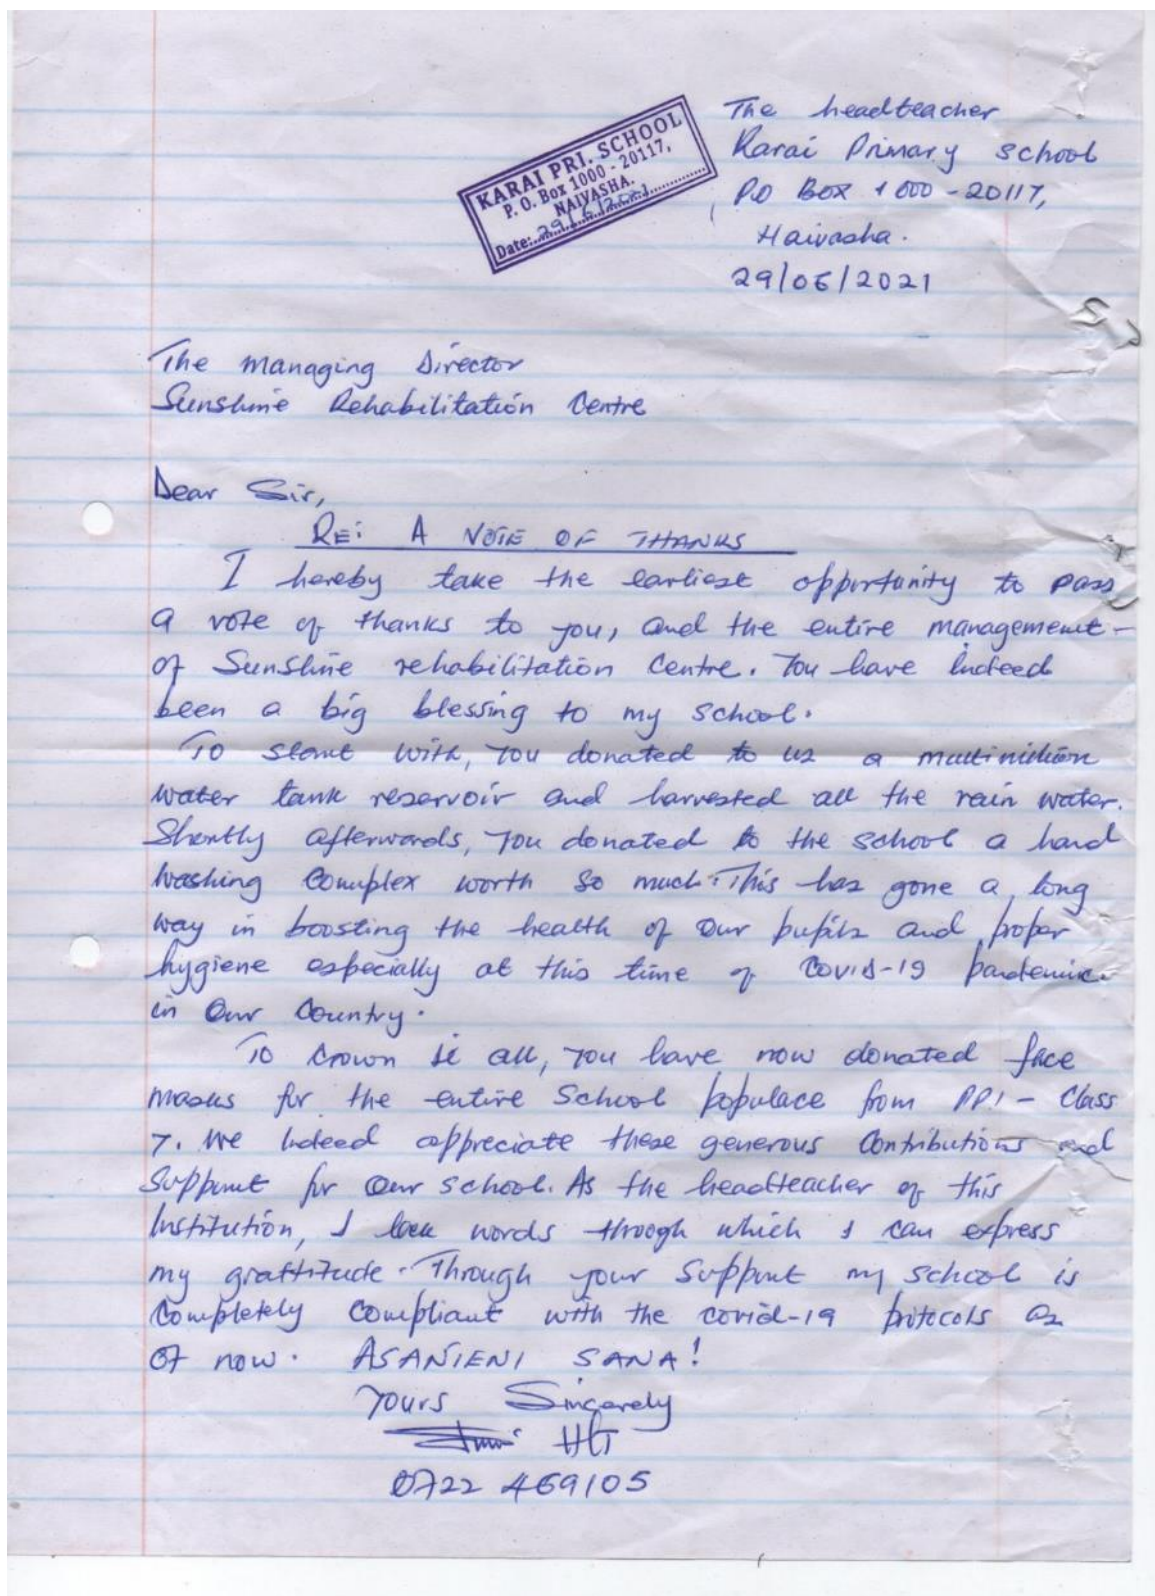 KARAI PRI. SCHOOL
P. O. Box 1000 - 20117,
NAIVASHA.
Date: 29/6/2021
The headteacher
Karai Primary school
P.O Box 1000 - 20117,
Naivasha.
29/06/2021
The Managing Director
Sunshine Rehabilitation Centre
Dear Sir,
RE: A NOTE OF THANKS
I hereby take the earliest opportunity to pass
a vote of thanks to you, and the entire management
of Sunshine rehabilitation Centre. You have indeed
been a big blessing to my school.
To start with, you donated to us a multimillion
water tank reservoir and harvested all the rain water.
Shortly afterwards, you donated to the school a hand
washing Complex worth so much. This has gone a long
way in boosting the health of our pupils and proper
hygiene especially at this time of COVID-19 pandemic
in our Country.
To crown it all, you have now donated face
masks for the entire School populace from PP1 - Class
7. We indeed appreciate these generous Contributions and
Support for our school. As the headteacher of this
Institution, I lack words through which I can express
my grattitude. Through your Support my school is
Completely Compliant with the covid-19 protocols as
of now. ASANTENI SANA!
Yours Sincerely
H/T
0722 469105